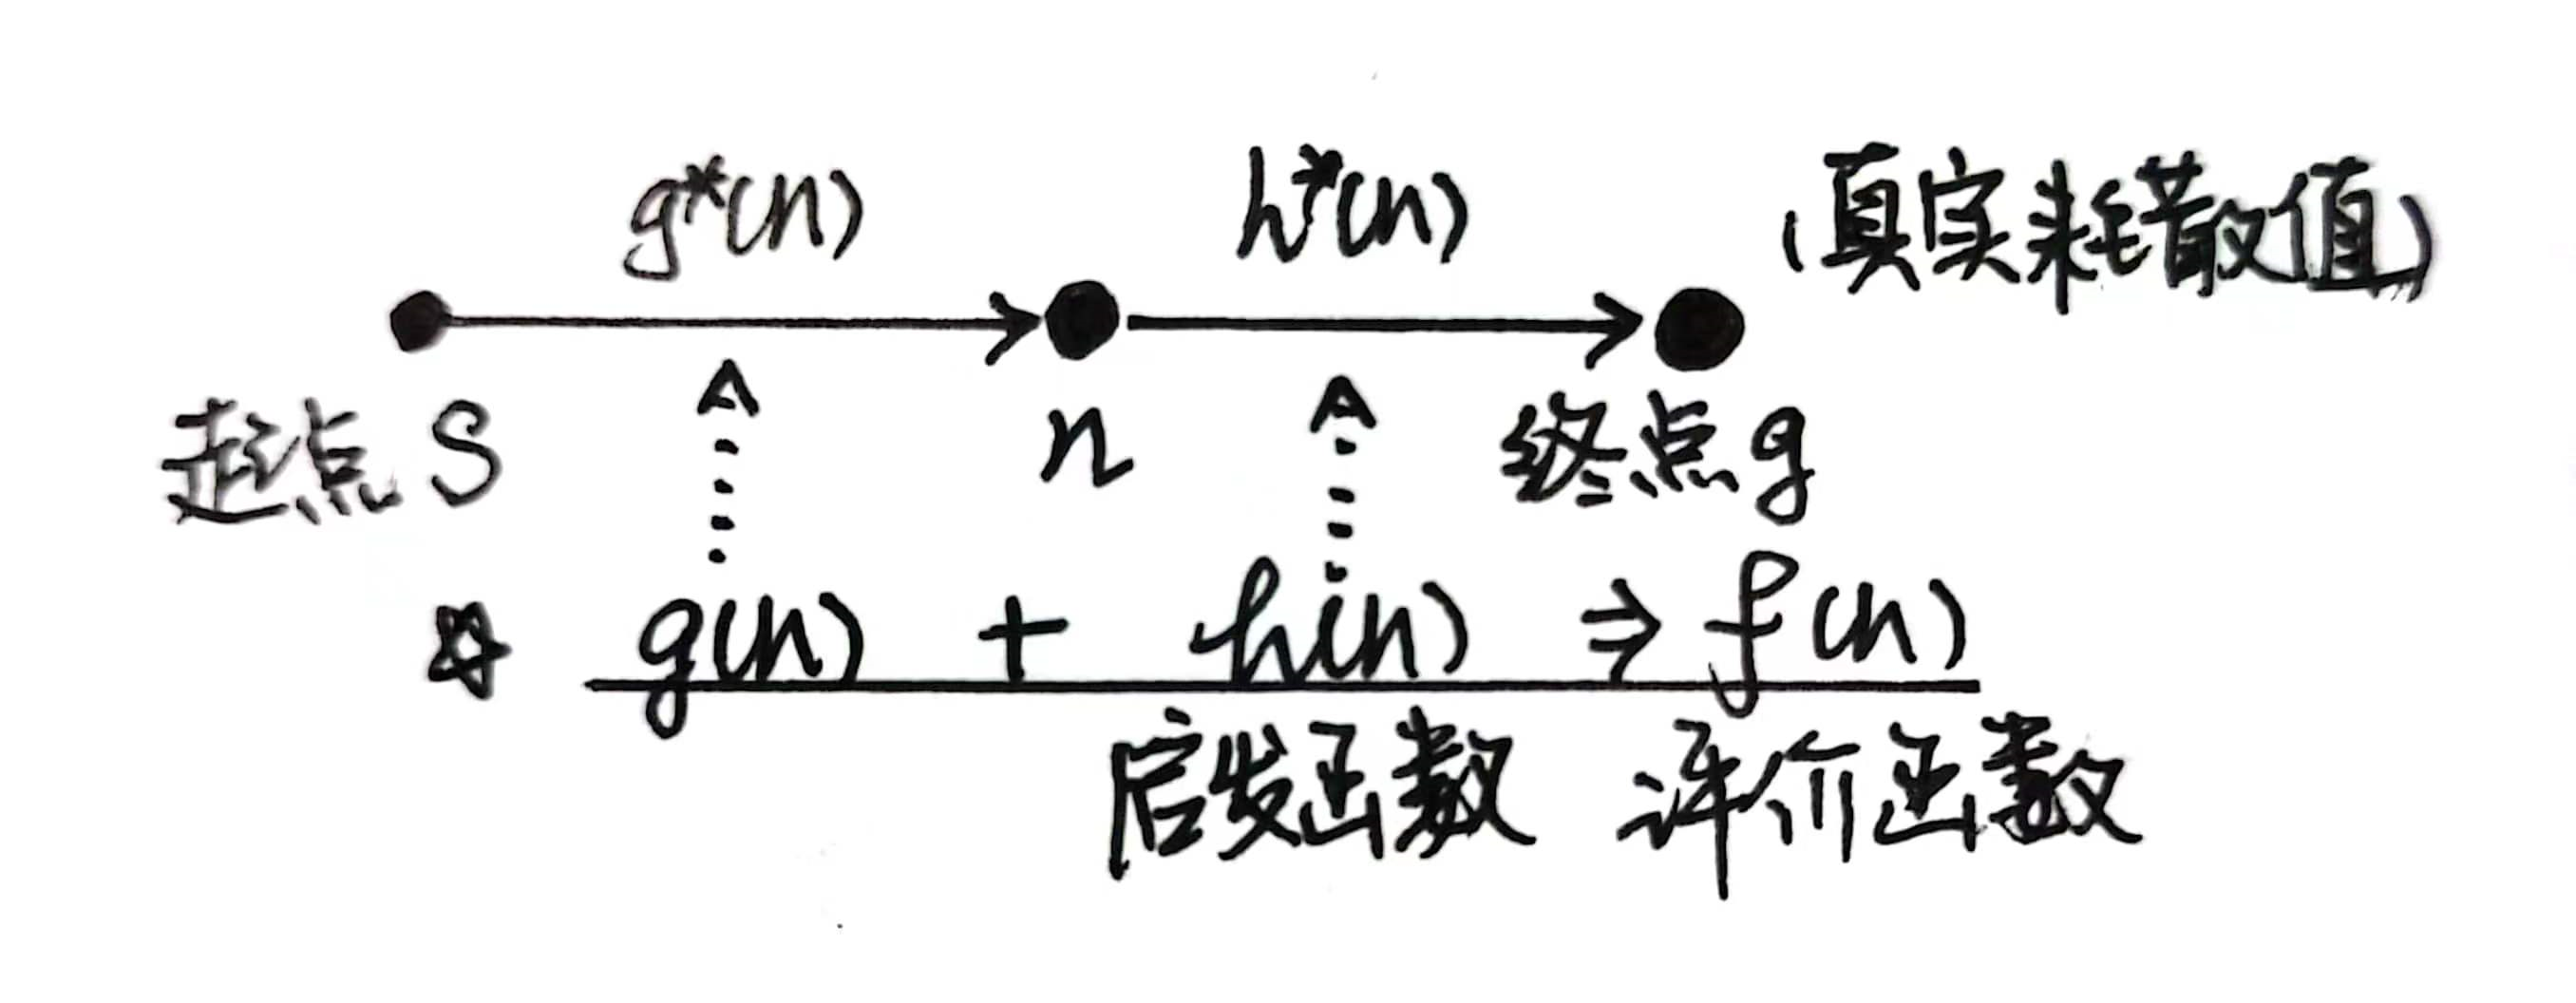 g*(n) h*(n) (真实耗散值)
起点 S n 终点 g
☆ g(n) + h(n) ⇒ f(n)
启发函数 评价函数